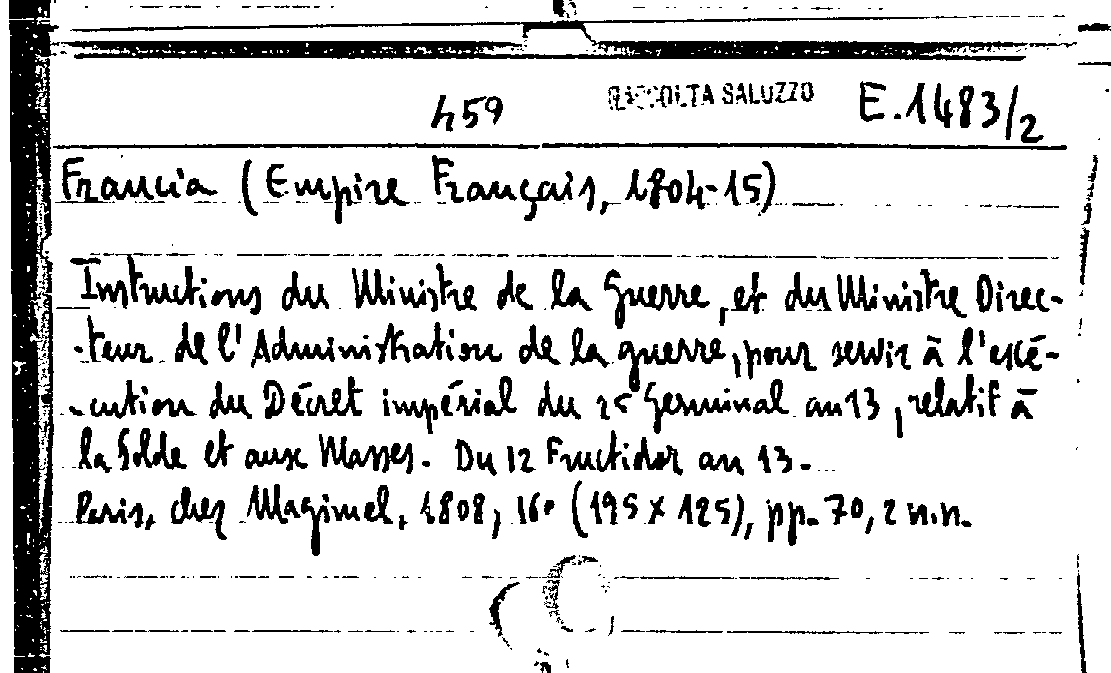 459 RACCOLTA SALUZZO E.1483/2
Francia (Empire Français, 1804-15)
Instructions du Ministre de la Guerre, et du Ministre Direc-
-teur de l'Administration de la guerre, pour servir à l'exé-
-cution du Décret impérial du 25 Germinal an 13, relatif à
la Solde et aux Masses. Du 12 Fructidor an 13.
Paris, chez Magimel, 1808, 16° (195 x 125), pp. 70, 2 n.n.